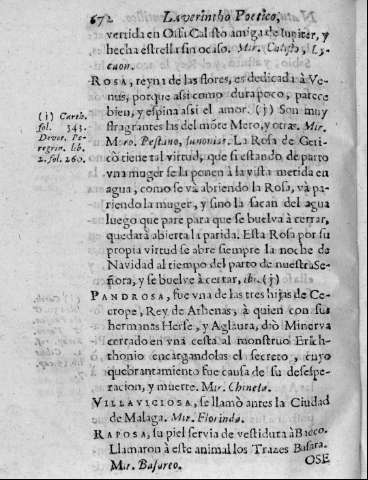 672 Laverintho Poetico,
vertida en Ossa Calisto amiga de Iupiter, y
hecha estrella sin ocaso. Mir. Calisto, Ly-
caon.
ROSA, reyna de las flores, es dedicada à Ve-
nus, porque assi como dura poco, parece
bien, y espina assi el amor. (j) Son muy
fragrantes las del mõte Mero, y otras. Mir.
Mero. Pestano, Iunonias. La Rosa de Geri-
cò tiene tal virtud, que si estando de parto
vna muger se la ponen à la vista metida en
agua, como se và abriendo la Rosa, và pa-
riendo la muger, y sino la sacan del agua
luego que pare para que se buelva à cerrar,
quedarà abierta la parida. Esta Rosa por su
propia virtud se abre siempre la noche de
Navidad al tiempo del parto de nuestra Se-
ñora, y se buelve à cerrar, ibi. (j)
(j) Carth.
fol. 343.
Devot. Pe-
regrin. lib.
2. fol. 260.
PANDROSA, fue vna de las tres hijas de Ce-
crope, Rey de Athenas, à quien con sus
hermanas Herse, y Aglaura, diò Minerva
cerrado en vna cesta al monstruo Erich-
thonio encargandolas el secreto, cuyo
quebrantamiento fue causa de su desespe-
racion, y muerte. Mir. Chineta.
VILLAVICIOSA, se llamò antes la Ciudad
de Malaga. Mir. Florinda.
RAPOSA, su piel servia de vestidura à Baco.
Llamaron à este animal los Trazes Basara.
Mir. Basareo.
OSE